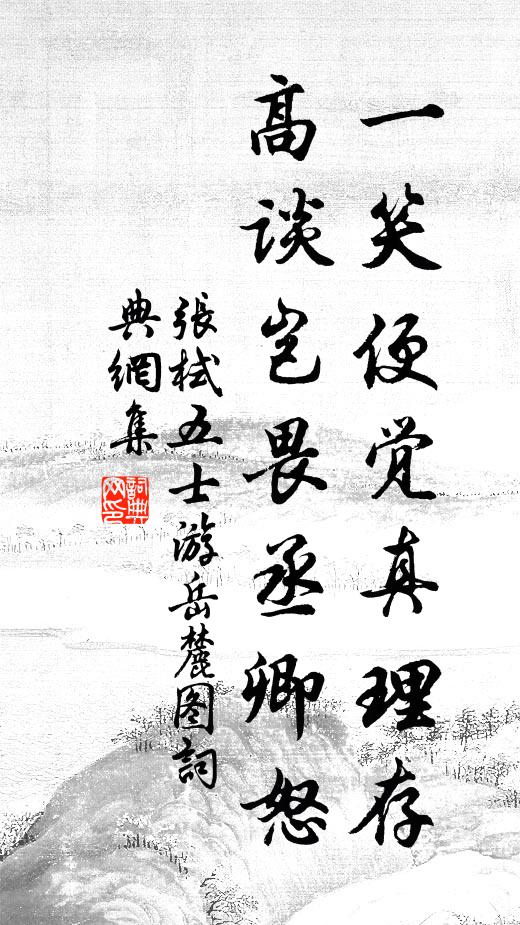 一笑便觉真理存
高谈岂畏丞卿怒
張栻五士游岳麓图詞
典網集
詞典网印